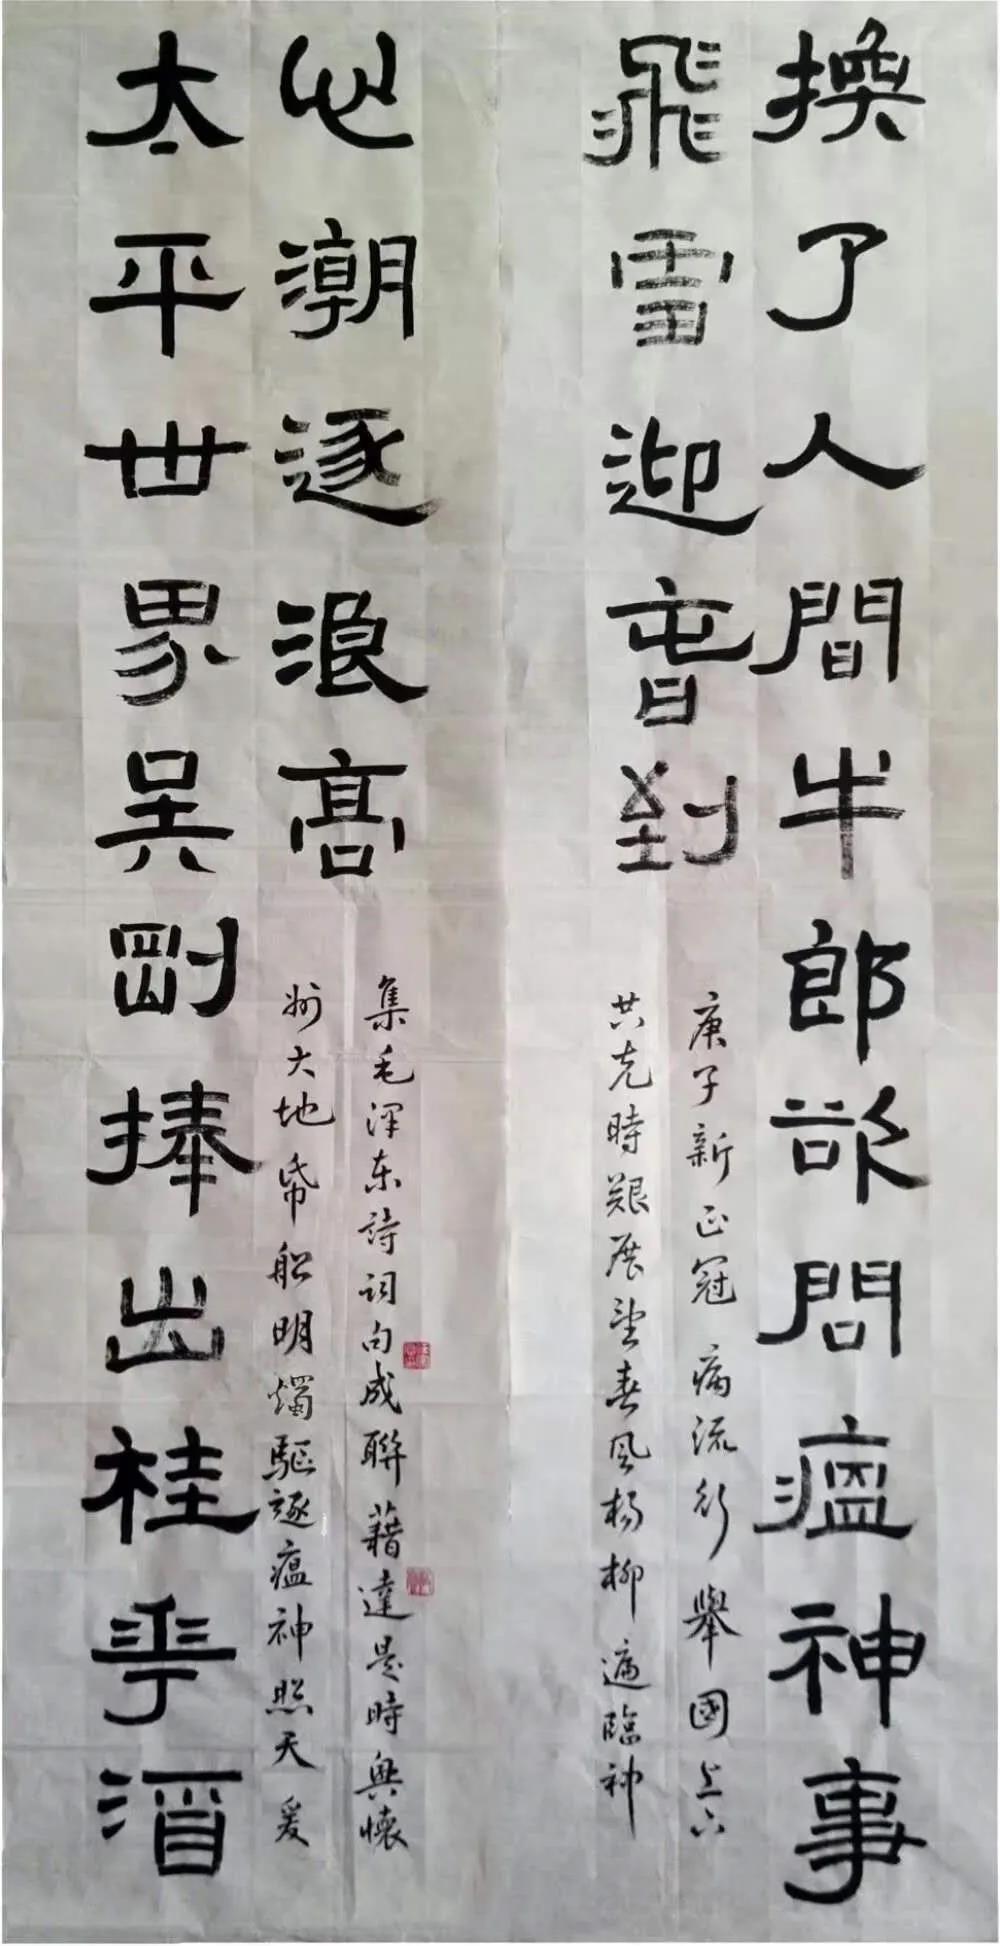 換了人間牛郎欲問瘟神事
飛雪迎旾到
庚子新正冠病流行舉國上下
共克時艱展望春風楊柳遍臨神
太平世界吳剛捧出桂花酒
心潮逐浪高
州大地帋船明燭驅逐瘟神照天爰
集毛澤東詩詞句成聯藉達是時興懷